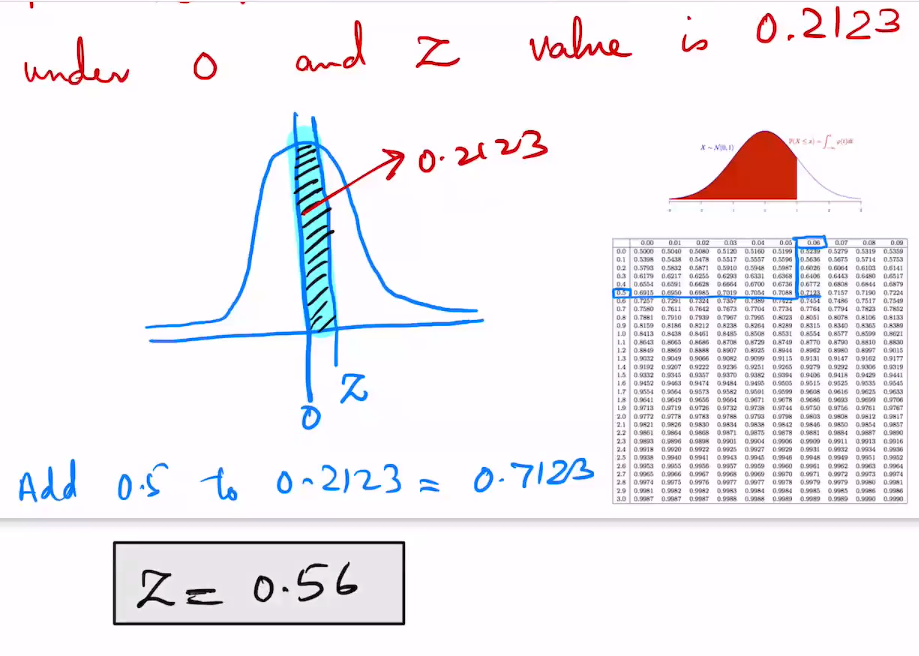 under 0 and Z value is 0.2123
0.2123
X ~ N(0, 1)
0 Z
Add 0.5 to 0.2123 = 0.7123
Z = 0.56
0.00 0.01 0.02 0.03 0.04 0.05 0.06 0.07 0.08 0.09
0.0 0.5000 0.5040 0.5080 0.5120 0.5160 0.5199 0.5239 0.5279 0.5319 0.5359
0.1 0.5398 0.5438 0.5478 0.5517 0.5557 0.5596 0.5636 0.5675 0.5714 0.5753
0.2 0.5793 0.5832 0.5871 0.5910 0.5948 0.5987 0.6026 0.6064 0.6103 0.6141
0.3 0.6179 0.6217 0.6255 0.6293 0.6331 0.6368 0.6406 0.6443 0.6480 0.6517
0.4 0.6554 0.6591 0.6628 0.6664 0.6700 0.6736 0.6772 0.6808 0.6844 0.6879
0.5 0.6915 0.6950 0.6985 0.7019 0.7054 0.7088 0.7123 0.7157 0.7190 0.7224
0.6 0.7257 0.7291 0.7324 0.7357 0.7389 0.7422 0.7454 0.7486 0.7517 0.7549
0.7 0.7580 0.7611 0.7642 0.7673 0.7704 0.7734 0.7764 0.7794 0.7823 0.7852
0.8 0.7881 0.7910 0.7939 0.7967 0.7995 0.8023 0.8051 0.8078 0.8106 0.8133
0.9 0.8159 0.8186 0.8212 0.8238 0.8264 0.8289 0.8315 0.8340 0.8365 0.8389
1.0 0.8413 0.8438 0.8461 0.8485 0.8508 0.8531 0.8554 0.8577 0.8599 0.8621
1.1 0.8643 0.8665 0.8686 0.8708 0.8729 0.8749 0.8770 0.8790 0.8810 0.8830
1.2 0.8849 0.8869 0.8888 0.8907 0.8925 0.8944 0.8962 0.8980 0.8997 0.9015
1.3 0.9032 0.9049 0.9066 0.9082 0.9099 0.9115 0.9131 0.9147 0.9162 0.9177
1.4 0.9192 0.9207 0.9222 0.9236 0.9251 0.9265 0.9279 0.9292 0.9306 0.9319
1.5 0.9332 0.9345 0.9357 0.9370 0.9382 0.9394 0.9406 0.9418 0.9429 0.9441
1.6 0.9452 0.9463 0.9474 0.9484 0.9495 0.9505 0.9515 0.9525 0.9535 0.9545
1.7 0.9554 0.9564 0.9573 0.9582 0.9591 0.9599 0.9608 0.9616 0.9625 0.9633
1.8 0.9641 0.9649 0.9656 0.9664 0.9671 0.9678 0.9686 0.9693 0.9699 0.9706
1.9 0.9713 0.9719 0.9726 0.9732 0.9738 0.9744 0.9750 0.9756 0.9761 0.9767
2.0 0.9772 0.9778 0.9783 0.9788 0.9793 0.9798 0.9803 0.9808 0.9812 0.9817
2.1 0.9821 0.9826 0.9830 0.9834 0.9838 0.9842 0.9846 0.9850 0.9854 0.9857
2.2 0.9861 0.9864 0.9868 0.9871 0.9875 0.9878 0.9881 0.9884 0.9887 0.9890
2.3 0.9893 0.9896 0.9898 0.9901 0.9904 0.9906 0.9909 0.9911 0.9913 0.9916
2.4 0.9918 0.9920 0.9922 0.9925 0.9927 0.9929 0.9931 0.9932 0.9934 0.9936
2.5 0.9938 0.9940 0.9941 0.9943 0.9945 0.9946 0.9948 0.9949 0.9951 0.9952
2.6 0.9953 0.9955 0.9956 0.9957 0.9959 0.9960 0.9961 0.9962 0.9963 0.9964
2.7 0.9965 0.9966 0.9967 0.9968 0.9969 0.9970 0.9971 0.9972 0.9973 0.9974
2.8 0.9974 0.9975 0.9976 0.9977 0.9977 0.9978 0.9979 0.9979 0.9980 0.9981
2.9 0.9981 0.9982 0.9982 0.9983 0.9984 0.9984 0.9985 0.9985 0.9986 0.9986
3.0 0.9987 0.9987 0.9987 0.9988 0.9988 0.9989 0.9989 0.9989 0.9990 0.9990